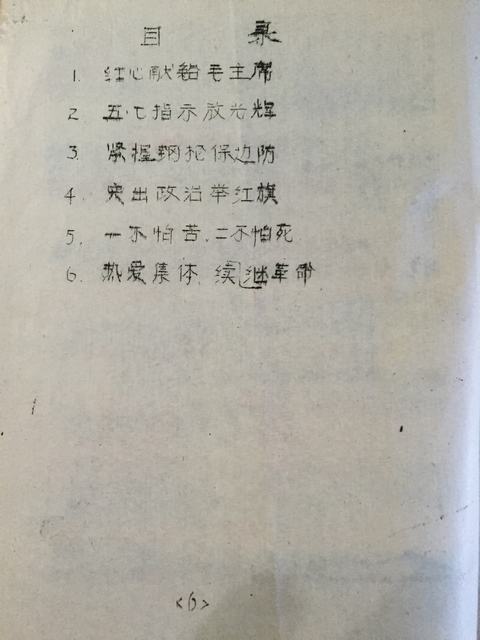 目 录
1. 红心献给毛主席
2 五·七指示放光辉
3. 紧握钢枪保边防
4. 突出政治举红旗
5. 一不怕苦,二不怕死
6. 热爱集体 续继革命
<6>